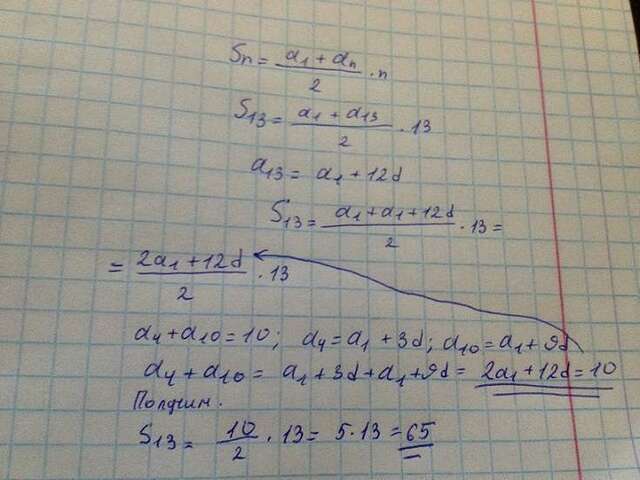 Sn = a1 + an / 2 · n
S13 = a1 + a13 / 2 · 13
a13 = a1 + 12d
S13 = a1 + a1 + 12d / 2 · 13 =
= 2a1 + 12d / 2 · 13
a4 + a10 = 10; a4 = a1 + 3d; a10 = a1 + 9d
a4 + a10 = a1 + 3d + a1 + 9d = 2a1 + 12d = 10
Получим:
S13 = 10 / 2 · 13 = 5 · 13 = 65